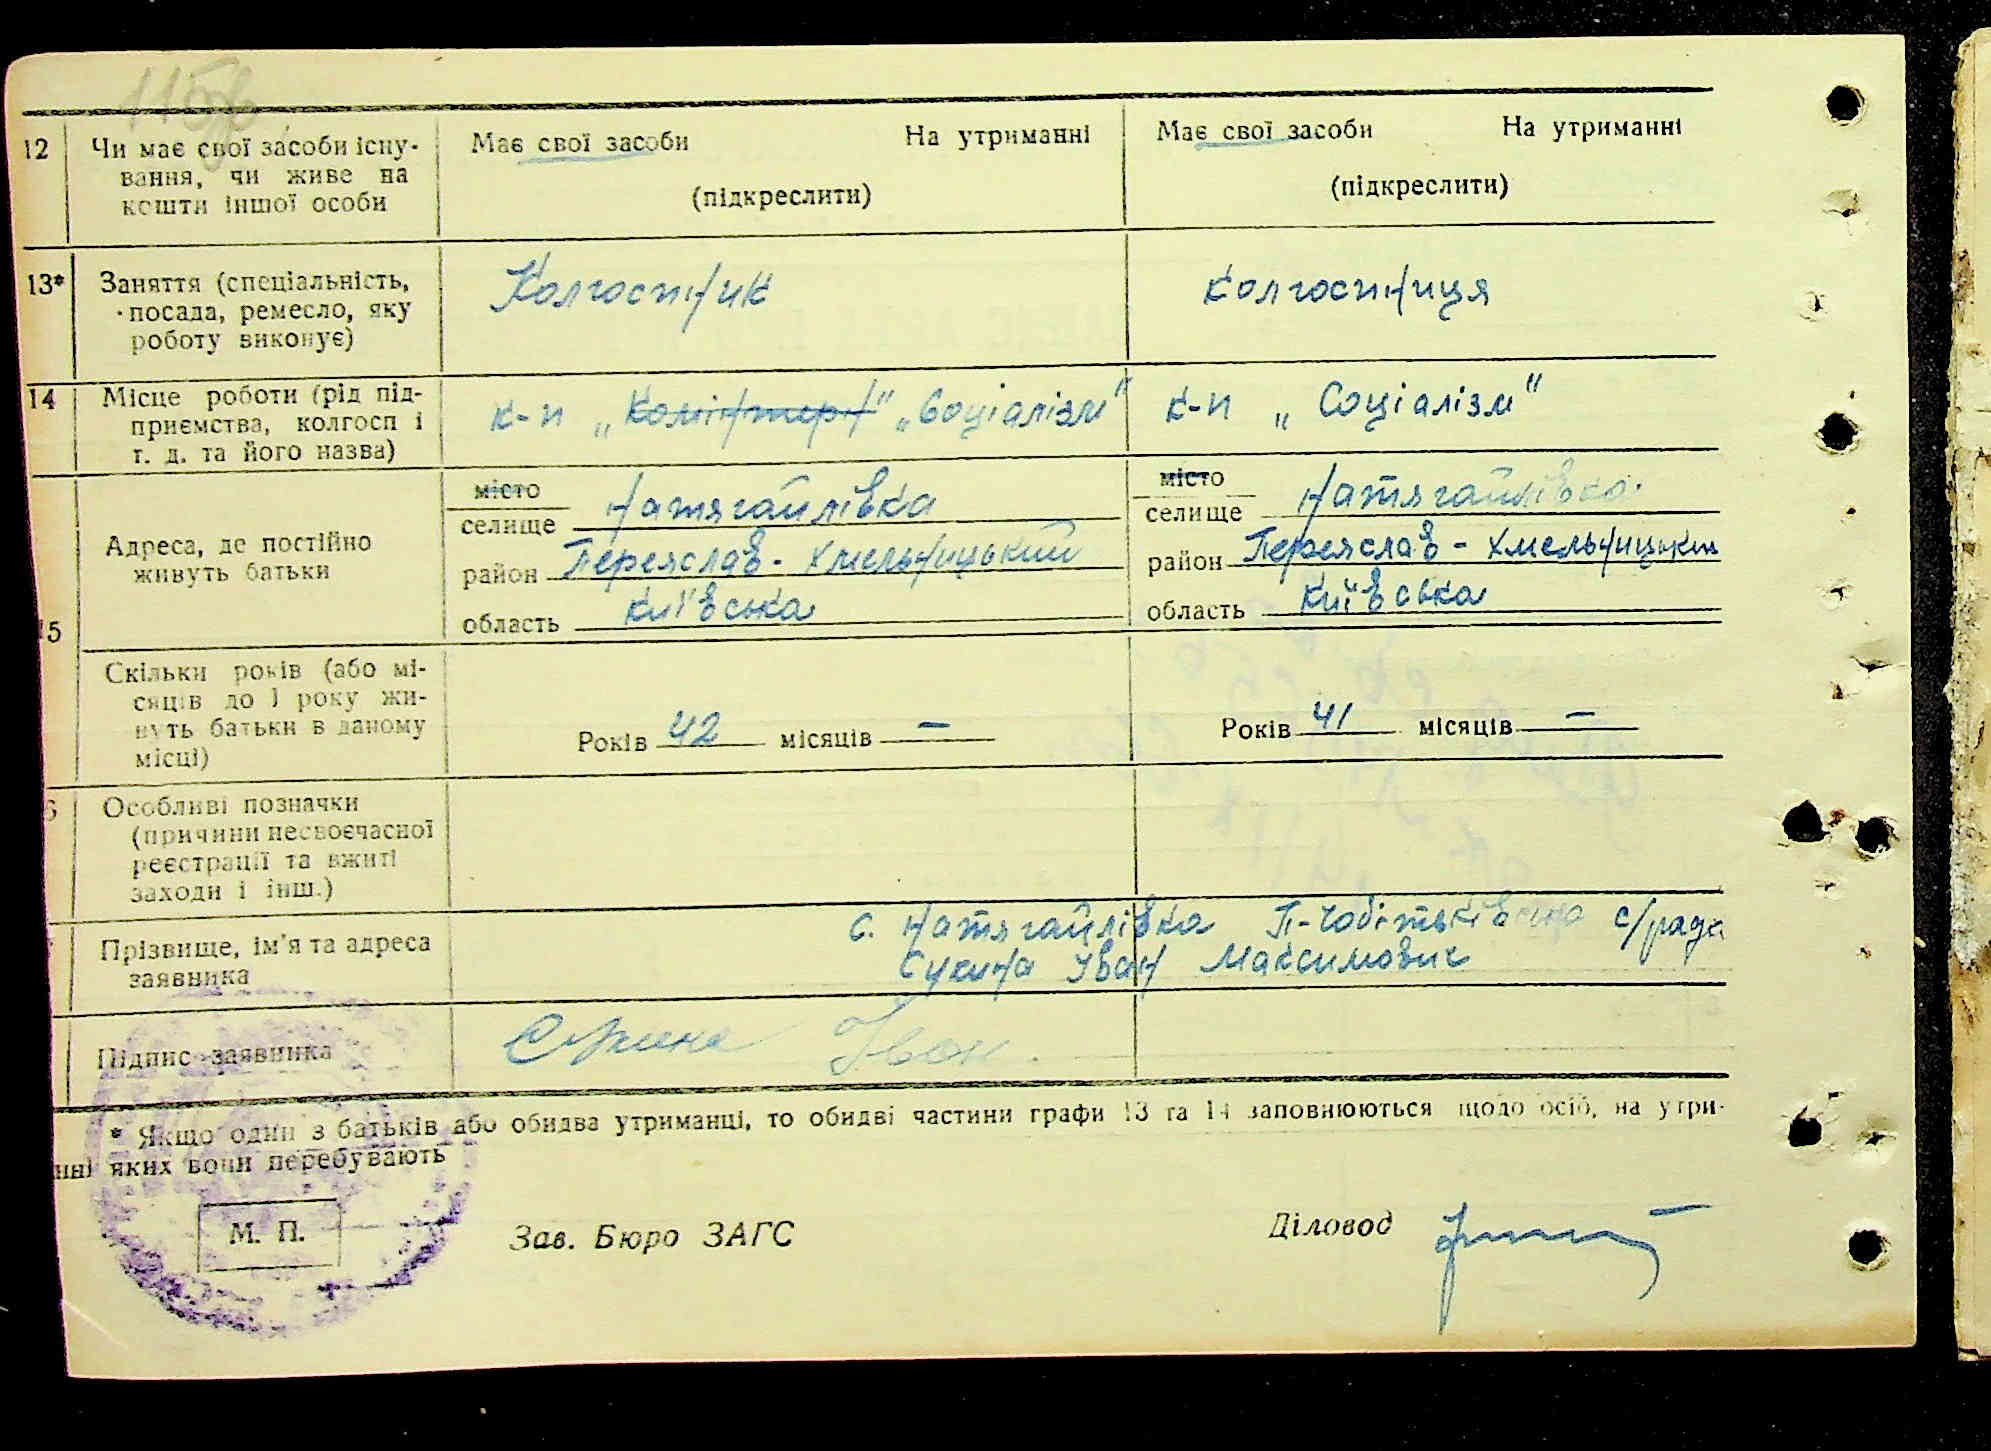 12 Чи має свої засоби існу-
вання, чи живе на
кошти іншої особи
Має свої засоби На утриманні
(підкреслити)
Має свої засоби На утриманні
(підкреслити)
13* Заняття (спеціальність,
посада, ремесло, яку
роботу виконує)
Колгоспник
Колгоспниця
14 Місце роботи (рід під-
приємства, колгосп і
т. д. та його назва)
к-п „Комінтерн" „Соціалізм"
к-п „Соціалізм"
15
Адреса, де постійно
живуть батьки
місто
селище Натягайлівка
район Переяслав-Хмельницький
область Київська
місто
селище Натягайлівка
район Переяслав-Хмельницький
область Київська
Скільки років (або мі-
сяців до 1 року жи-
вуть батьки в даному
місці)
Років 42 місяців —
Років 41 місяців —
6 Особливі позначки
(причини несвоєчасної
реєстрації та вжиті
заходи і інш.)
Прізвище, ім'я та адреса
заявника
с. Натягайлівка с/рада
Сукина Іван Максимович
Підпис заявника
Іван
* Якщо один з батьків або обидва утриманці, то обидві частини графи 13 та 14 заповнюються щодо осіб, на утри-
нні яких вони перебувають
М. П.
Зав. Бюро ЗАГС
Діловод